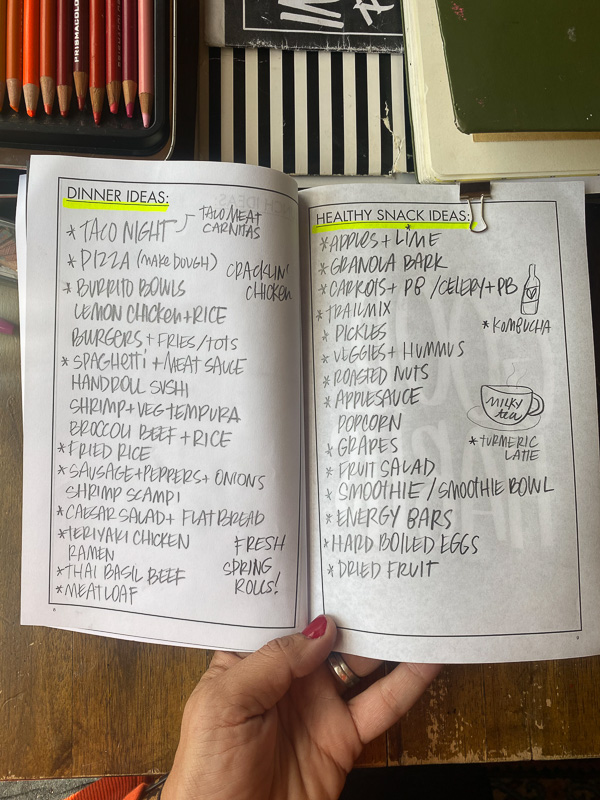 PRISMACOLOR
DINNER IDEAS:
* TACO NIGHT
TACO MEAT
CARNITAS
* PIZZA (MAKE DOUGH)
CRACKLIN'
CHICKEN
* BURRITO BOWLS
LEMON CHICKEN + RICE
BURGERS + FRIES/TOTS
* SPAGHETTI + MEAT SAUCE
HANDROLL SUSHI
SHRIMP + VEG TEMPURA
BROCCOLI BEEF + RICE
* FRIED RICE
* SAUSAGE + PEPPERS + ONIONS
SHRIMP SCAMPI
* CAESAR SALAD + FLATBREAD
* TERIYAKI CHICKEN
RAMEN
* THAI BASIL BEEF
* MEATLOAF
FRESH
SPRING
ROLLS!
HEALTHY SNACK IDEAS:
* APPLES + LIME
* GRANOLA BARK
* CARROTS + PB / CELERY + PB
* TRAILMIX
* PICKLES
* VEGGIES + HUMMUS
* ROASTED NUTS
* APPLESAUCE
POPCORN
* GRAPES
* FRUIT SALAD
* SMOOTHIE / SMOOTHIE BOWL
* ENERGY BARS
* HARD BOILED EGGS
* DRIED FRUIT
* KOMBUCHA
MILKY
tea
* TURMERIC
LATTE